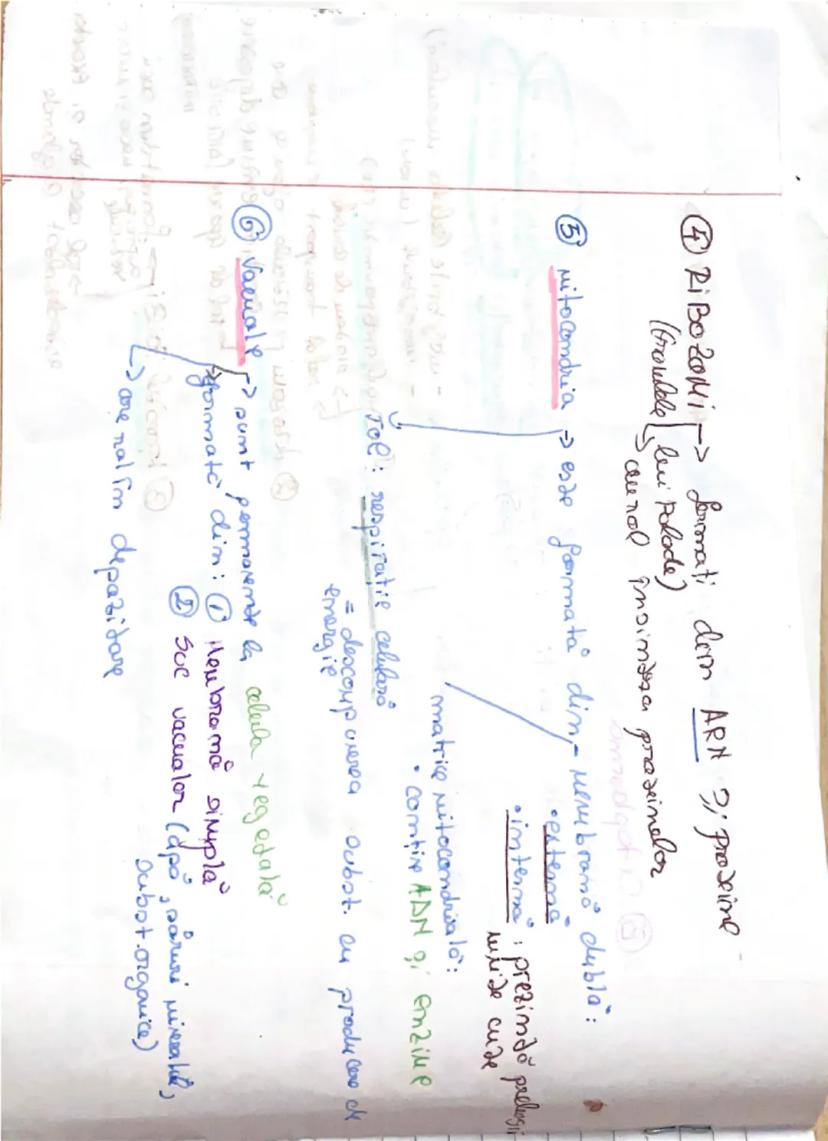 ④ RIBOZOMI → formați din ARN și proteine
(Granulele lui Palade)
↳ au rol în sinteza proteinelor
⑤ mitocondria → este formată din - membrană dublă:
• externă
• internă: prezintă
numite
matrice mitocondrială:
• conține ADN și enzime
rol: respirație celulară
= descompunerea subst. cu producere de
energie
⑥ Vacuole → sunt permanente la celula vegetală
→ formate din: ① Membrană simplă
② Suc vacuolar (apă, săruri minerale,
subst. organice)
↳ are rol în depozitare